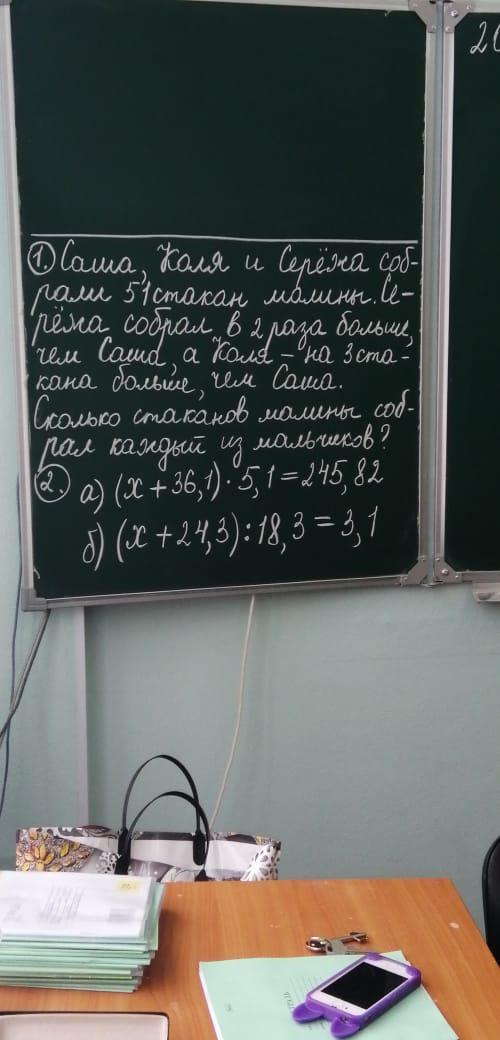 20
1. Саша, Коля и Серёжа соб-
рали 51 стакан малины. Се-
рёжа собрал в 2 раза больше,
чем Саша, а Коля - на 3 ста-
кана больше, чем Саша.
Сколько стаканов малины соб-
рал каждый из мальчиков?
2. а) (x + 36,1) · 5,1 = 245,82
б) (x + 24,3) : 18,3 = 3,1